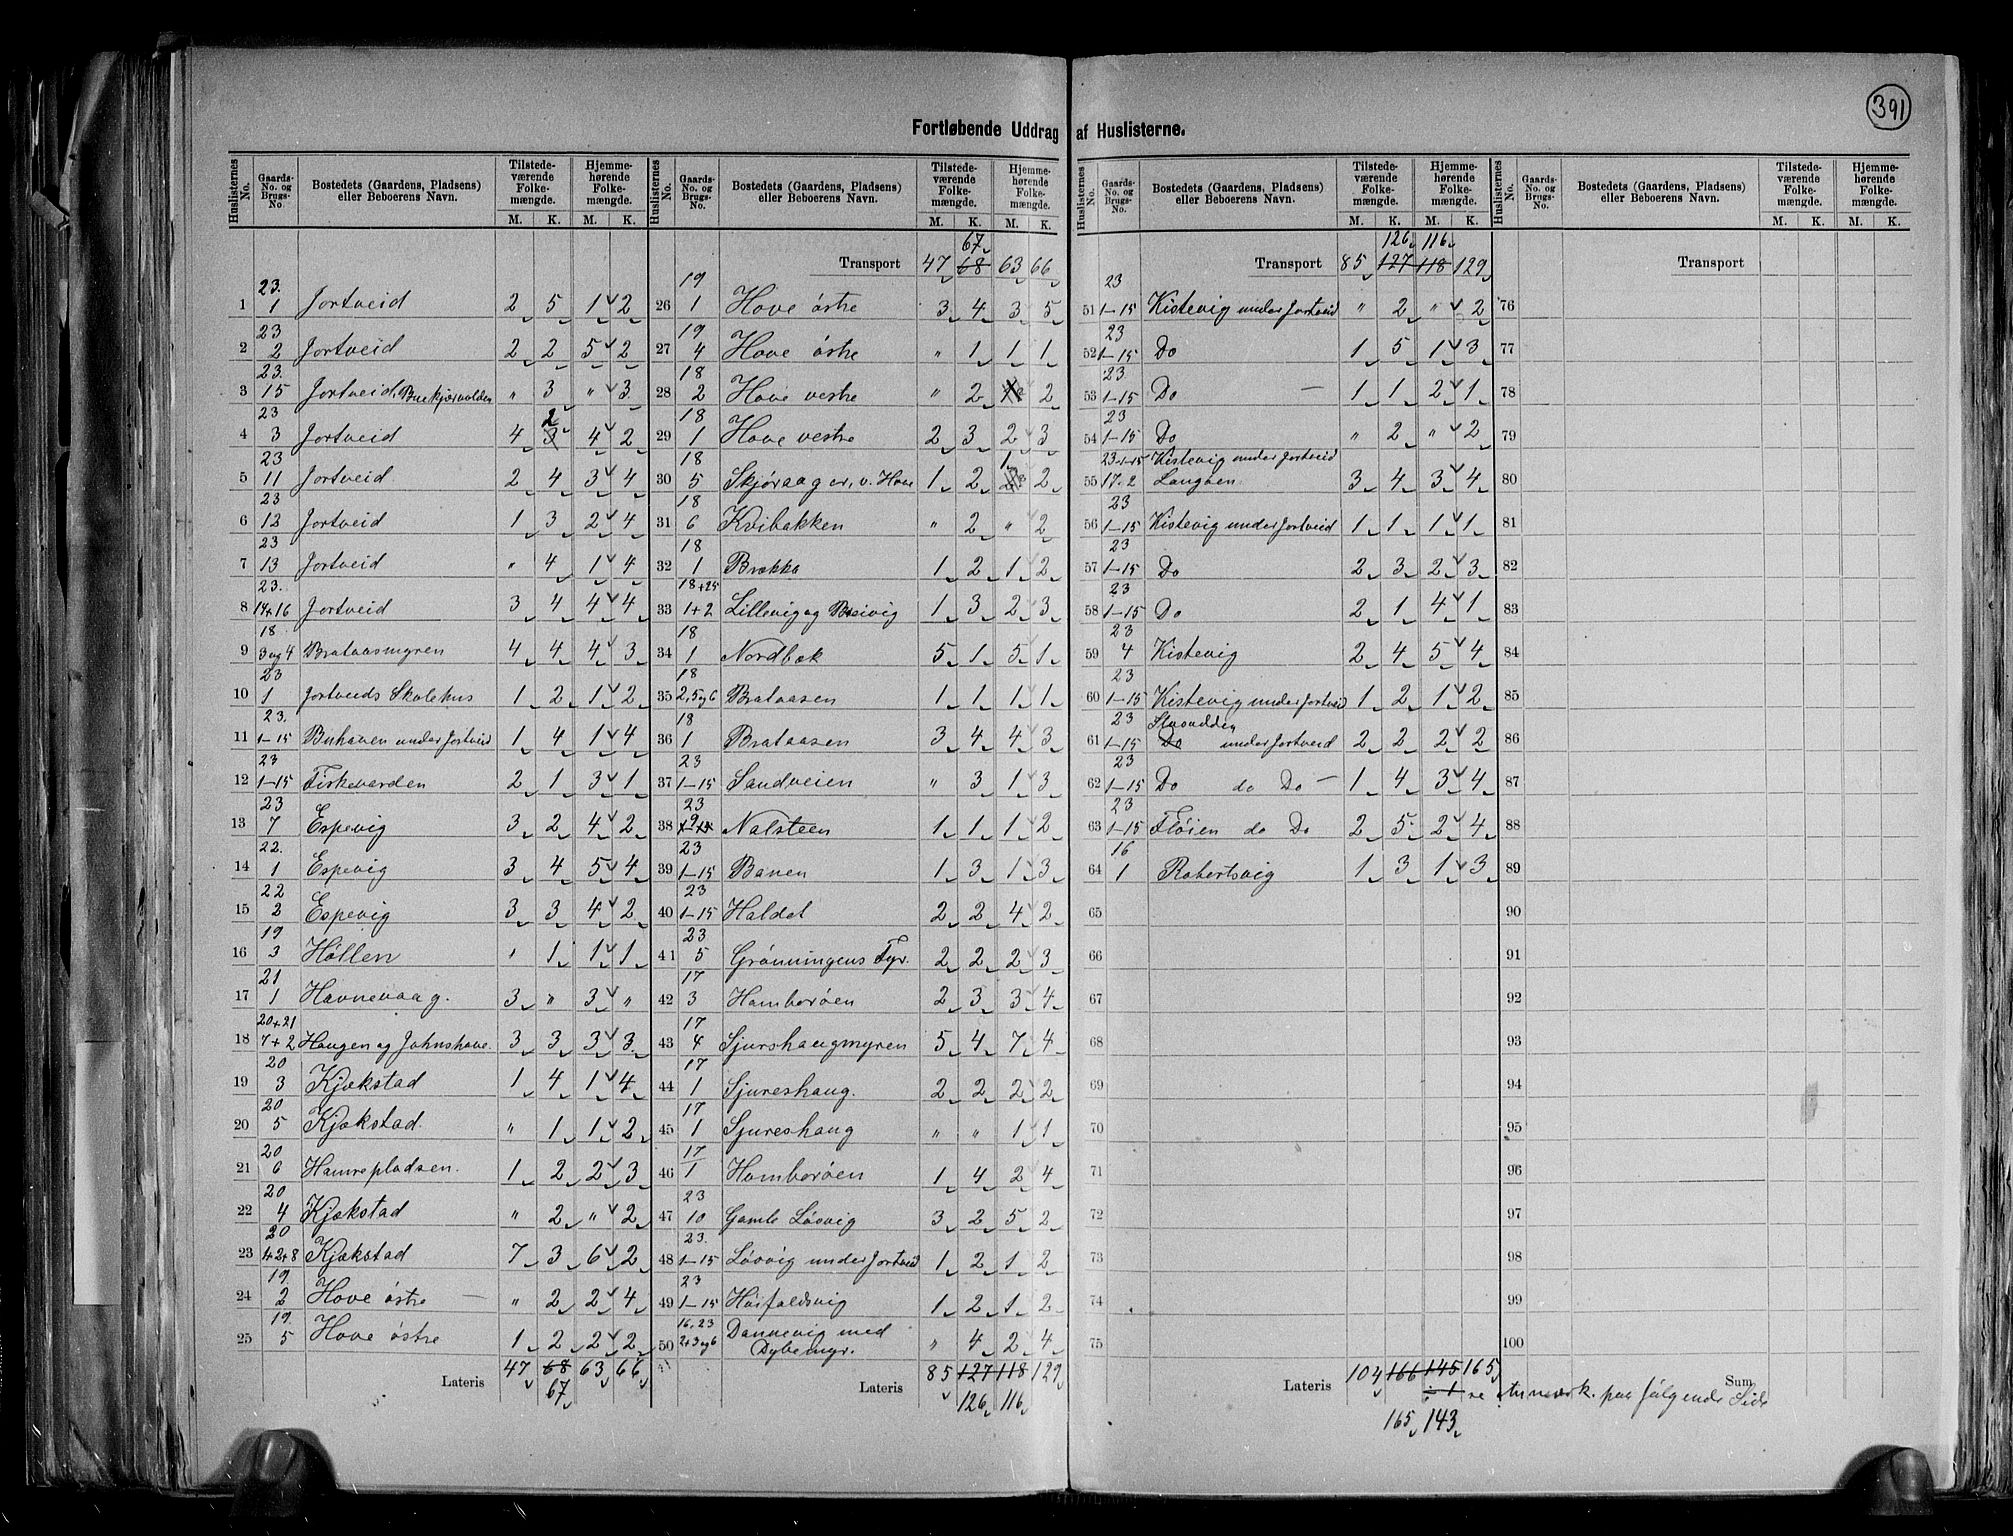 391
Fortløbende Uddrag af Huslisterne.
Huslisternes No. | Gaards- No. og Brugs- No. | Bostedets (Gaardens, Pladsens) eller Beboerens Navn. | Tilstede- værende Folke- mængde. M. K. | Hjemme- hørende Folke- mængde. M. K.
1 | 23. 1 | Jortveid | 2 | 5 | 1 | 2
2 | 23 2 | Jortveid | 2 | 2 | 5 | 2
3 | 23. 15 | Jortveid, Buekjærvolden | " | 3 | " | 3
4 | 23 3 | Jortveid | 4 | 3 2 | 4 | 2
5 | 23 11 | Jortveid | 2 | 4 | 3 | 4
6 | 23 12 | Jortveid | 1 | 3 | 2 | 4
7 | 23 13 | Jortveid | " | 4 | 1 | 4
8 | 23. 14+16 | Jortveid | 3 | 4 | 4 | 4
9 | 18 3 og 4 | Brataasmyren | 4 | 4 | 4 | 3
10 | 23 1 | Jortveids Skolehus | 1 | 2 | 1 | 2
11 | 23. 1-15 | Buhaven under Jortveid | 1 | 4 | 1 | 4
12 | 23 1-15 | Fiskevarden | 2 | 1 | 3 | 1
13 | 23 7 | Espevig | 3 | 2 | 4 | 2
14 | 22. 1 | Espevig | 3 | 4 | 5 | 4
15 | 22 2 | Espevig | 3 | 3 | 4 | 2
16 | 19 3 | Høllen | " | 1 | 1 | 1
17 | 21 1 | Havnevaag. | 3 | " | 3 | "
18 | 20+21 7+2 | Haugen og Johnshave. | 3 | 3 | 3 | 3
19 | 20 3 | Kjækstad | 1 | 4 | 1 | 4
20 | 20 5 | Kjækstad. | " | 1 | 1 | 2
21 | 20 6 | Hamrepladsen. | 1 | 2 | 2 | 3
22 | 20 4 | Kjækstad | " | 2 | " | 2
23 | 20 42+8 | Kjækstad | 7 | 3 | 6 | 2
24 | 19. 2 | Hove østre | " | 2 | 2 | 4
25 | 19. 5 | Hove østre | 1 | 2 | 2 | 2
Lateris | 47 | 68 67 | 63 | 66
Huslisternes No. | Gaards- No. og Brugs- No. | Bostedets (Gaardens, Pladsens) eller Beboerens Navn. | Tilstede- værende Folke- mængde. M. K. | Hjemme- hørende Folke- mængde. M. K.
Transport | 47 | 67 68 | 63 | 66
26 | 19 1 | Hove østre | 3 | 4 | 3 | 5
27 | 19 4 | Hove østre | " | 1 | 1 | 1
28 | 18 2 | Hove vestre | " | 2 | 2
29 | 18 1 | Hove vestre | 2 | 3 | 2 | 3
30 | 18 5 | Skjøraager, v. Hove | 1 | 2 | 1 | 2
31 | 18 6 | Kvibakken | " | 2 | " | 2
32 | 18 1 | Brække | 1 | 2 | 1 | 2
33 | 18+25 1+2 | Lillevig og Breivig | 1 | 3 | 2 | 3
34 | 18 1 | Nordbæk | 5 | 1 | 5 | 1
35 | 18 2, 5 og 6 | Brataasen | 1 | 1 | 1 | 1
36 | 18 1 | Brataasen | 3 | 4 | 4 | 3
37 | 23 1-15 | Sandveien | " | 3 | 1 | 3
38 | 23 9 | Nalsteen | 1 | 1 | 1 | 2
39 | 23 1-15 | Banen | 1 | 3 | 1 | 3
40 | 23 1-15 | Haldet | 2 | 2 | 4 | 2
41 | 23 5 | Grønningens Fyr. | 2 | 2 | 2 | 3
42 | 17 3 | Homborøen | 2 | 3 | 3 | 4
43 | 17 4 | Sjurshaugmyren | 5 | 4 | 7 | 4
44 | 17 1 | Sjureshaug. | 2 | 2 | 2 | 2
45 | 17 1 | Sjureshaug | " | " | 1 | 1
46 | 17 1 | Homborøen | 1 | 4 | 2 | 4
47 | 23 10 | Gamle Løsvig | 3 | 2 | 5 | 2
48 | 23. 1-15 | Løsvig under Jortveid | 1 | 2 | 1 | 2
49 | 23 1-15 | Hasfaldsvig | 1 | 2 | 1 | 2
50 | 16.23 2+3 og 6 | Dannevig med Dybemyr. | " | 4 | 2 | 4
Lateris | 85 | 127 126 | 118 116 | 129
Huslisternes No. | Gaards- No. og Brugs- No. | Bostedets (Gaardens, Pladsens) eller Beboerens Navn. | Tilstede- værende Folke- mængde. M. K. | Hjemme- hørende Folke- mængde. M. K.
Transport | 85 | 126 127 | 116 118 | 129
51 | 23 1-15 | Kistevig under Jortveid | " | 2 | " | 2
52 | 23 1-15 | Do | 1 | 5 | 1 | 3
53 | 23 1-15 | Do | 1 | 1 | 2 | 1
54 | 23 1-15 | Do | " | 2 | " | 2
55 | 23-1-15 17.2 | Kistevig under Jortveid Langøen | 3 | 4 | 3 | 4
56 | 23 1-15 | Kistevig under Jortveid | 1 | 1 | 1 | 1
57 | 23 1-15 | Do | 2 | 3 | 2 | 3
58 | 23 1-15 | Do | 2 | 1 | 4 | 1
59 | 23 4 | Kistevig | 2 | 4 | 5 | 4
60 | 23 1-15 | Kistevig under Jortveid | 1 | 2 | 1 | 2
61 | 23 1-15 | Do under Jortveid | 2 | 2 | 2 | 2
62 | 23 1-15 | Do do Do | 1 | 4 | 3 | 4
63 | 23 1-15 | Fløien do Do | 2 | 5 | 2 | 4
64 | 16 1 | Robertsvig | 1 | 3 | 1 | 3
65
66
67
68
69
70
71
72
73
74
75
Lateris | 104 | 166 165 | 145 ÷1 143 | 165
Huslisternes No. | Gaards- No. og Brugs- No. | Bostedets (Gaardens, Pladsens) eller Beboerens Navn. | Tilstede- værende Folke- mængde. M. K. | Hjemme- hørende Folke- mængde. M. K.
Transport
76
77
78
79
80
81
82
83
84
85
86
87
88
89
90
91
92
93
94
95
96
97
98
99
100
Sum
se Anmærk. paa følgende Side